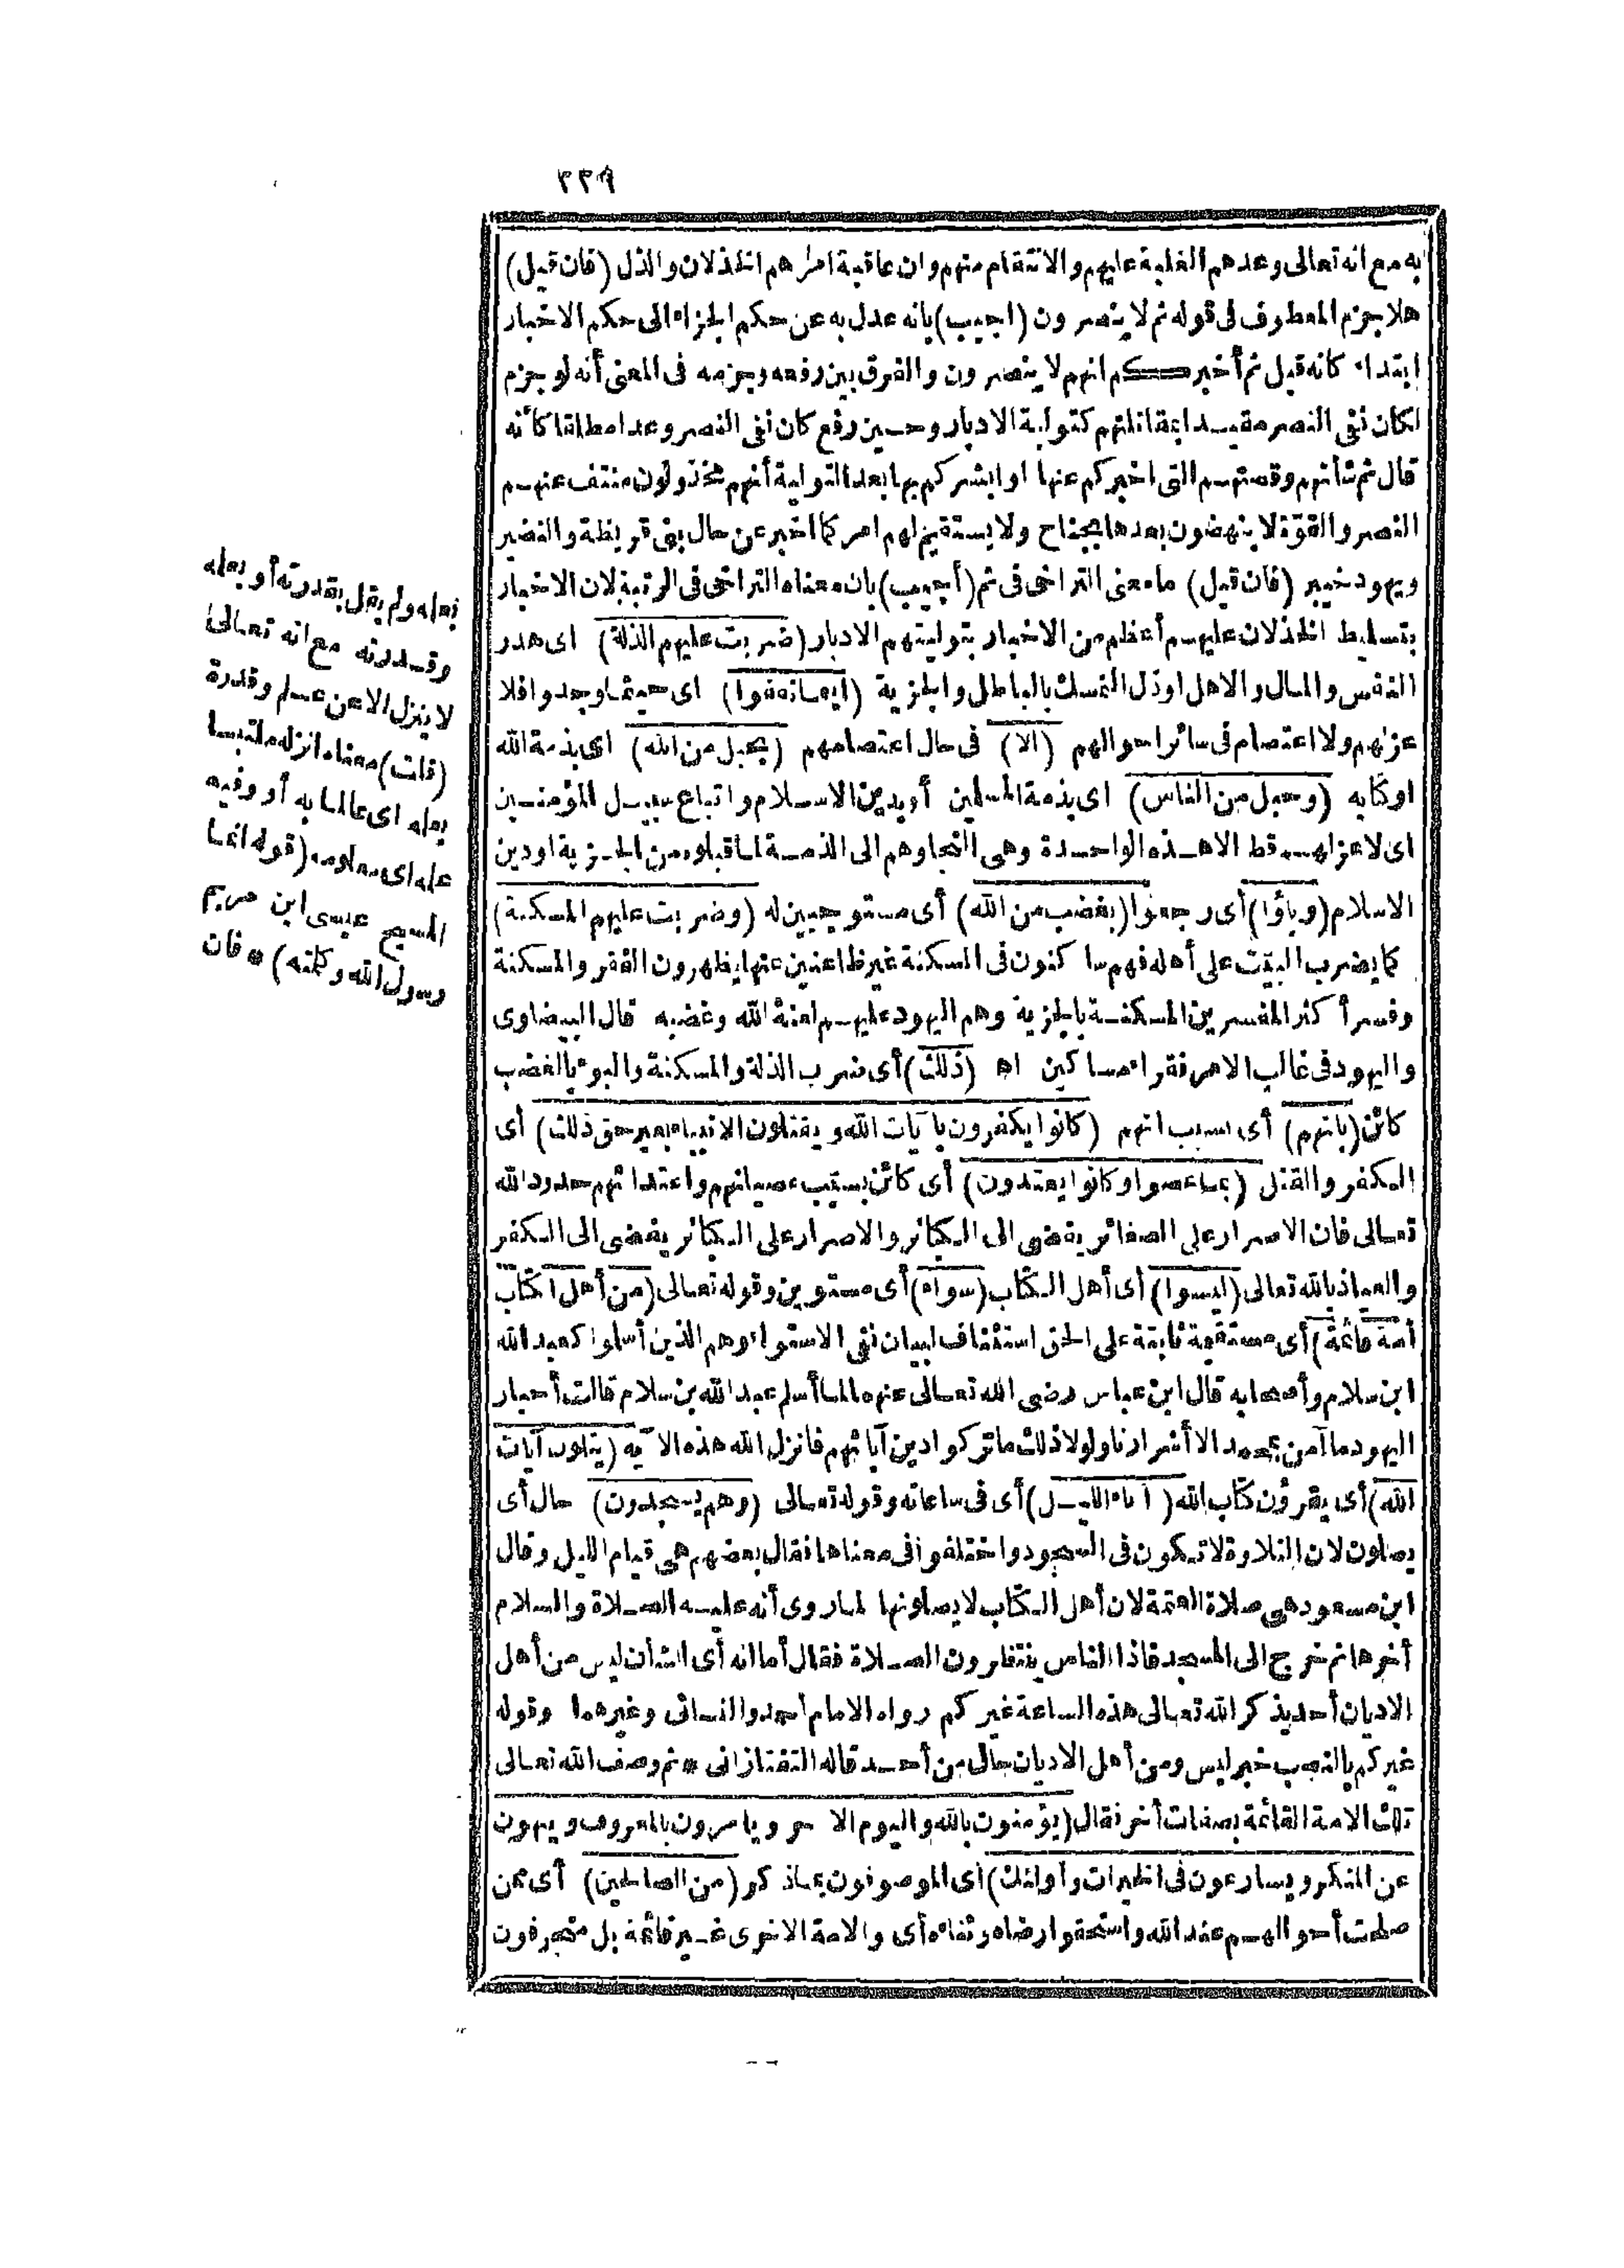 ٢٣٩
به مع انه تعالى وعدهم الغلبة عليهم والانتقام منهم وان عاقبة امرهم الخذلان والذل (فان قيل)
هلا جزم المعطوف فى قوله ثم لا ينصرون (اجيب) بانه عدل به عن حكم الجزاء الى حكم الاخبار
ابتداء كانه قيل ثم أخبركم انهم لا ينصرون والفرق بين رفعه وجزمه فى المعنى أنه لو جزم
لكان نفى النصر مقيدا بمقاتلتهم كتولية الادبار وحين رفع كان نفى النصر وعدا مطلقا كأنه
قال ثم شأنهم وقصتهم التى اخبركم عنها او ابشركم بها بعد التولية أنهم مخذولون منتف عنهم
النصر والقوّة لا ينهضون بعدها بجناح ولا يستقيم لهم امر كما اخبر عن حال بنى قريظة والنضير
ويهود خيبر (فان قيل) ما معنى التراخى فى ثم (أجيب) بان معناه التراخى فى الرتبة لان الاخبار
بتسليط الخذلان عليهم أعظم من الاخبار بتوليتهم الادبار (ضربت عليهم الذلة) اى هدر
النفس والمال والاهل او ذل التمسك بالباطل والجزية (أينما ثقفوا) اى حيثما وجدوا فلا
عزلهم ولا اعتصام فى سائر احوالهم (الا) فى حال اعتصامهم (بحبل من الله) اى بذمة الله
او كتابه (وحبل من الناس) اى بذمة المسلمين أو بدين الاسلام واتباع سبيل المؤمنين
اى لا عزلهم قط الا هذه الواحدة وهى التجاوهم الى الذمة لما قبلوه من الجزية او دين
الاسلام (وباؤا) أى رجعوا (بغضب من الله) أى مستوجبين له (وضربت عليهم المسكنة)
كما يضرب البيت على أهله فهم ساكنون فى المسكنة غير ظاعنين عنها يظهرون الفقر والمسكنة
وفسر أكثر المفسرين المسكنة بالجزية وهم اليهود عليهم لعنة الله وغضبه قال البيضاوى
واليهود فى غالب الامر فقراء مساكين اه (ذلك) أى ضرب الذلة والمسكنة والبوء بالغضب
كائن (بانهم) أى بسبب انهم (كانوا يكفرون بآيات الله ويقتلون الانبياء بغير حق ذلك) أى
الكفر والقتل (بما عصوا وكانوا يعتدون) أى كائن بسبب عصيانهم واعتدائهم حدود الله
تعالى فان الاصرار على الصغائر يفضى الى الكبائر والاصرار على الكبائر يفضى الى الكفر
والعياذ بالله تعالى (ليسوا) أى أهل الكتاب (سواء) أى مستوين وقوله تعالى (من أهل الكتاب
أمة قائمة) أى مستقيمة ثابتة على الحق استئناف لبيان نفى الاستواء وهم الذين أسلوا كعبد الله
ابن سلام وأصحابه قال ابن عباس رضى الله تعالى عنه لما أسلم عبد الله بن سلام قالت أحبار
اليهود ما آمن بمحمد الا أشرارنا ولولا ذلك ما تركوا دين آبائهم فانزل الله هذه الآيه (يتلون آيات
الله) أى يقرؤن كتاب الله (آناء الليل) أى فى ساعاته وقوله تعالى (وهم يسجدون) حال أى
يصلون لان التلاوة لا تكون فى السجود واختلفوا فى معناها فقال بعضهم هى قيام الليل وقال
ابن مسعود هى صلاة العتمة لان أهل الكتاب لا يصلونها لما روى أنه عليه الصلاة والسلام
أخرها ثم خرج الى المسجد فاذا الناس ينتظرون الصلاة فقال أما انه أى الشأن ليس من أهل
الاديان أحد يذكر الله تعالى هذه الساعة غيركم رواه الامام احمد والنسائى وغيرهما وقوله
غيركم بالنصب خبر ليس ومن أهل الاديان حال من أحد قاله التفتازانى * ثم وصف الله تعالى
تلك الامة القائمة بصفات أخر فقال (يؤمنون بالله واليوم الاخر ويامرون بالمعروف وينهون
عن المنكر ويسارعون فى الخيرات وأولئك) أى الموصوفون بما ذكر (من الصالحين) أى ممن
صلحت أحوالهم عند الله واستحقوا رضاه وثناءه أى والامة الاخرى غير قائمة بل منحرفون
بعلمه ولم يقل بقدرته أو بعلمه
وقدرته مع انه تعالى
لا ينزل الا عن علم وقدرة
(قلت) معناه انزله ملتبسا
بعلمه اى عالما به أو وفيه
علمه اى معلومه (قوله انما
المسيح عيسى ابن مريم
رسول الله وكلمته) * فان